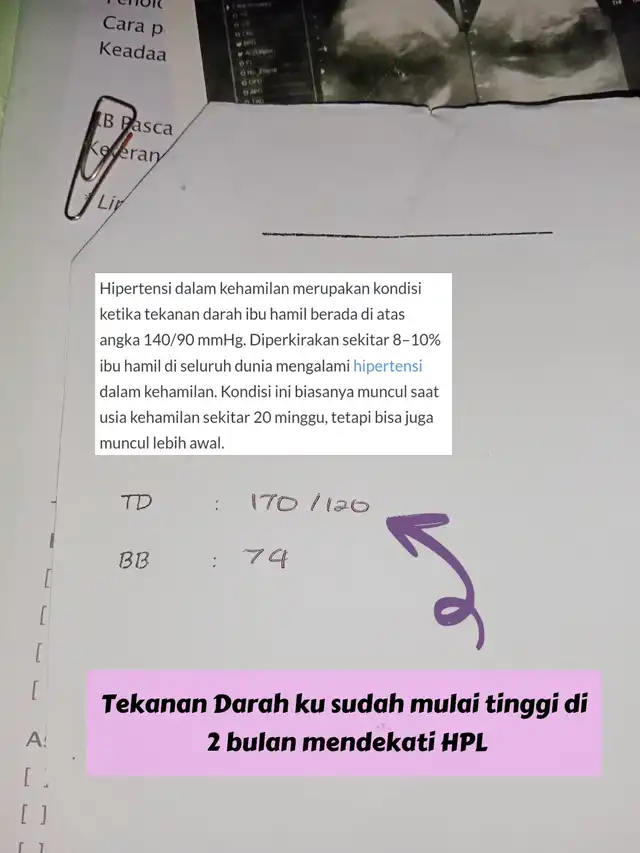 Cara p
Keadaa
KB Pasca
Keteran
* Lin
Hipertensi dalam kehamilan merupakan kondisi
ketika tekanan darah ibu hamil berada di atas
angka 140/90 mmHg. Diperkirakan sekitar 8–10%
ibu hamil di seluruh dunia mengalami hipertensi
dalam kehamilan. Kondisi ini biasanya muncul saat
usia kehamilan sekitar 20 minggu, tetapi bisa juga
muncul lebih awal.
TD : 170/120
BB : 74
Tekanan Darah ku sudah mulai tinggi di
2 bulan mendekati HPL